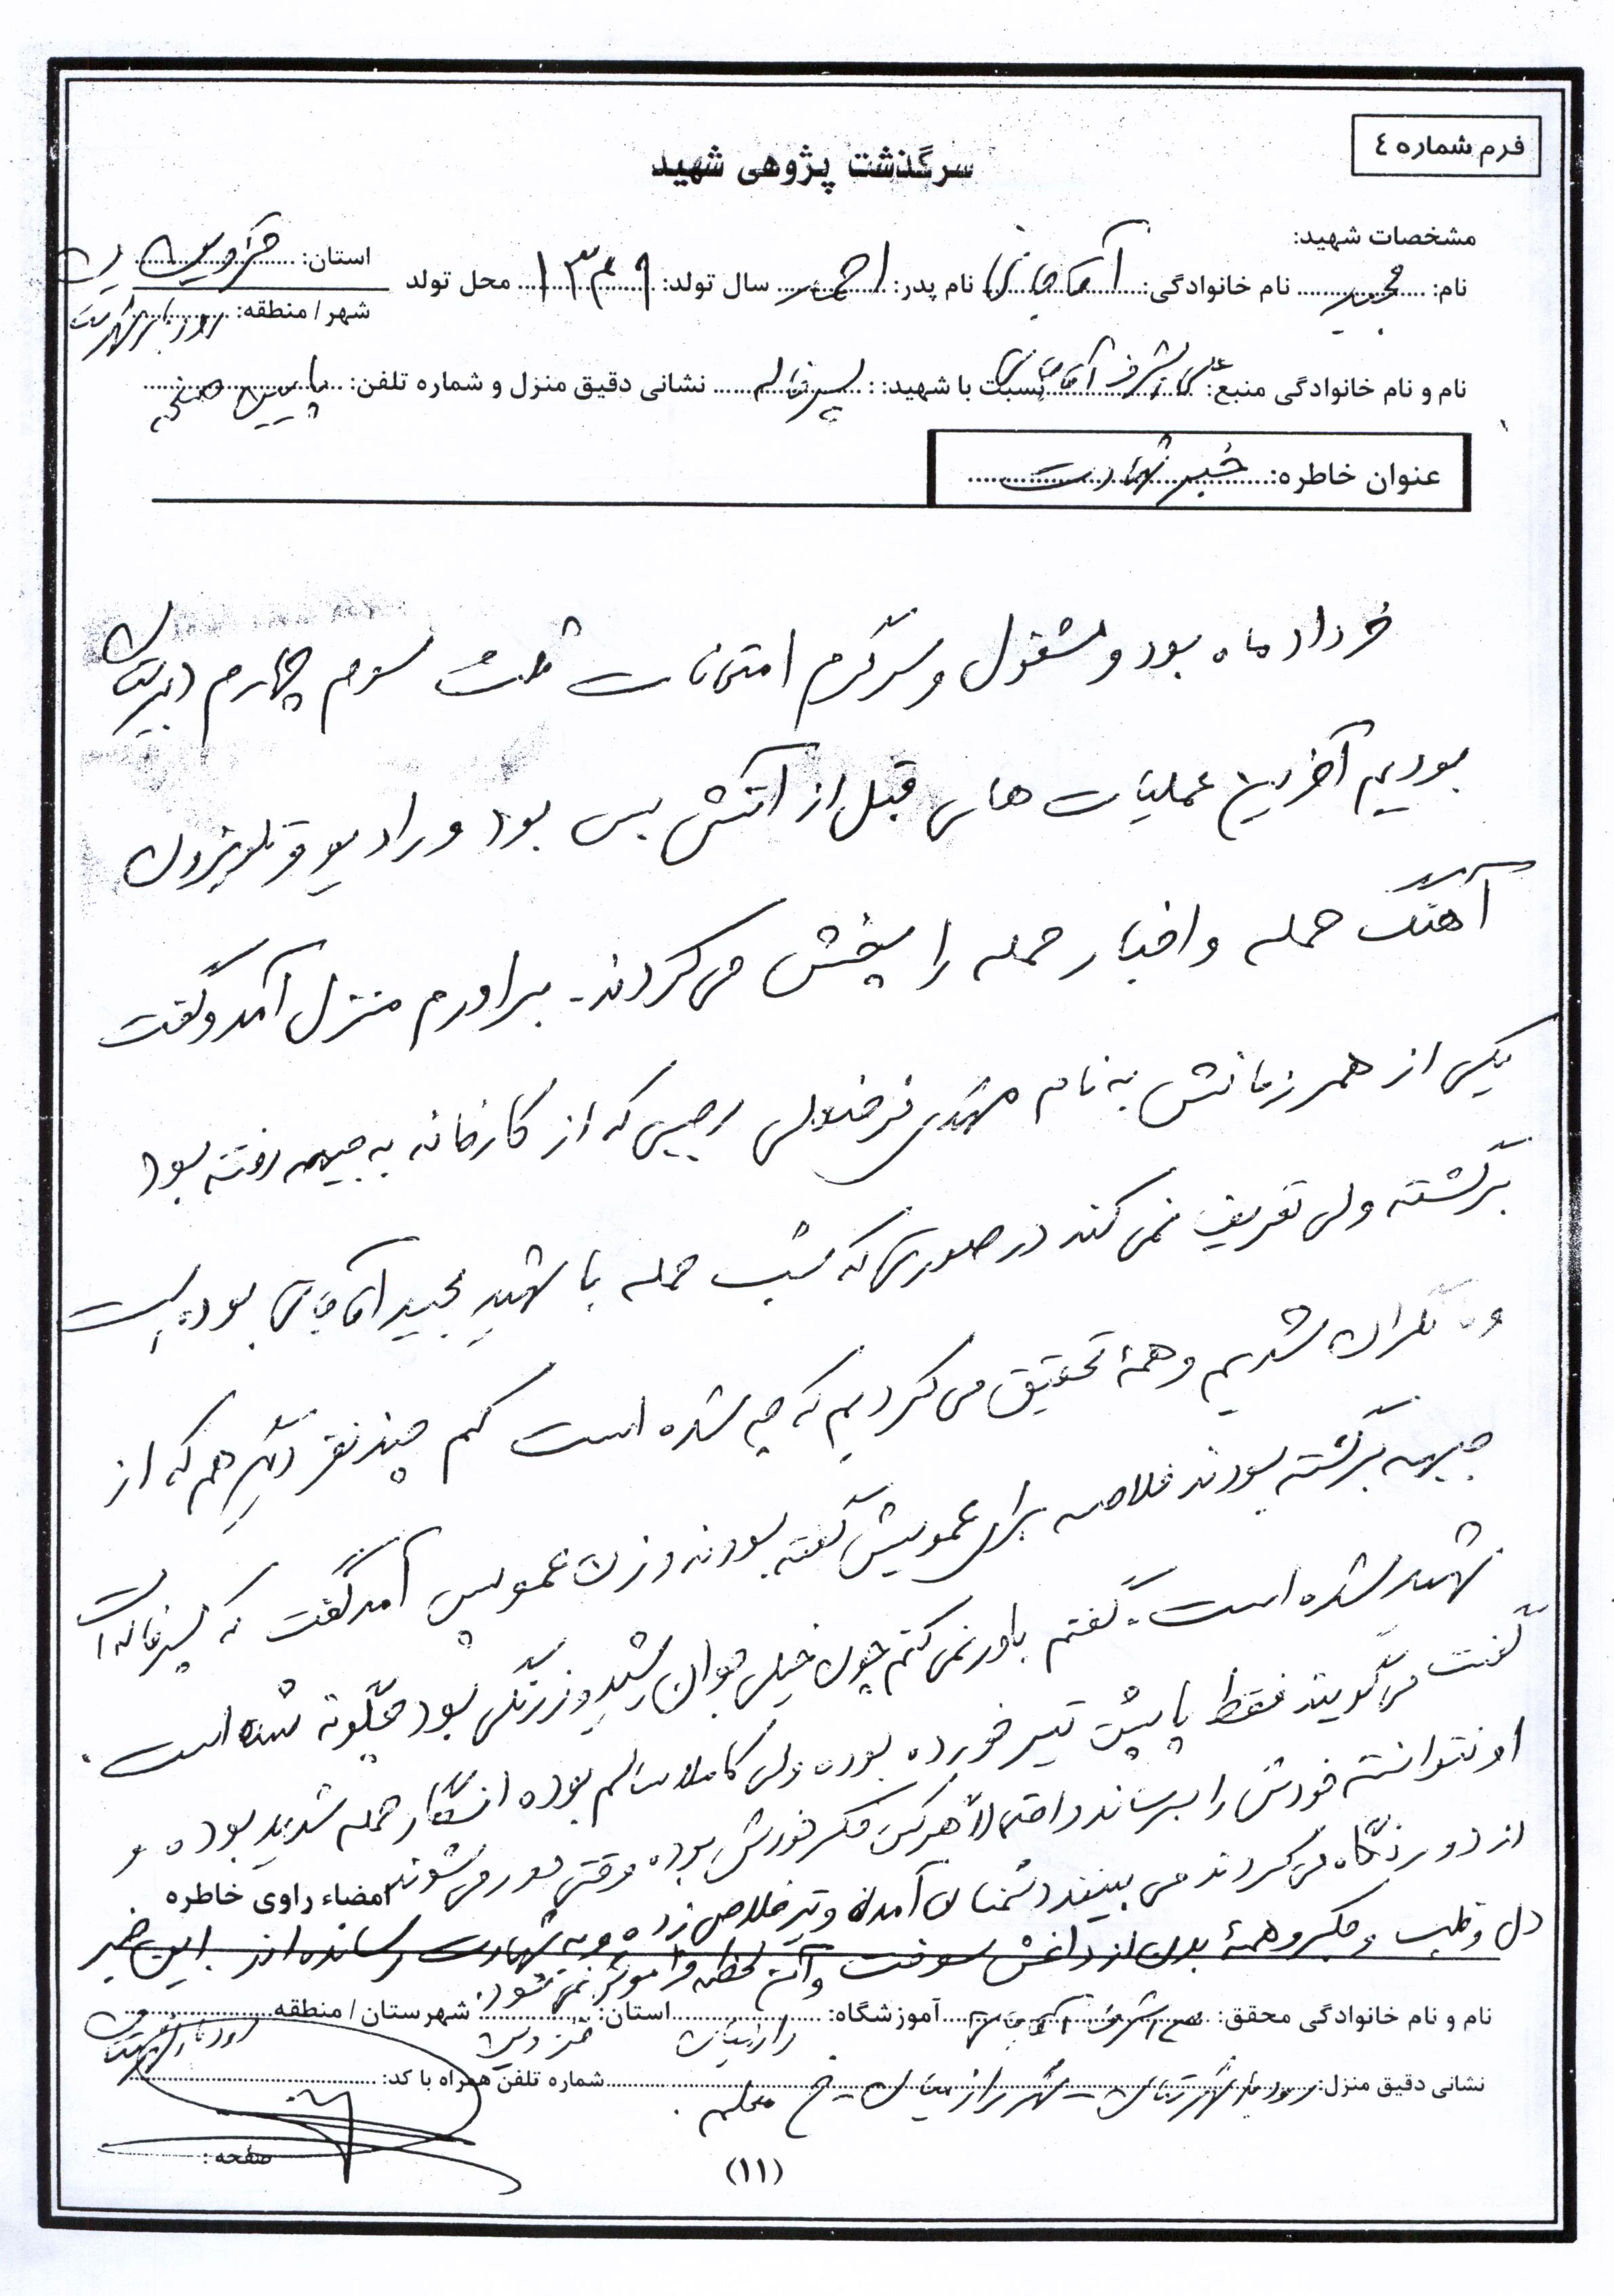 فرم شماره ٤
سرگذشت پژوهی شهید
مشخصات شهید:
نام: مجید نام خانوادگی: آقاجانی نام پدر: احمد سال تولد: ۱۳۴۹ محل تولد
استان: قزوین
شهر / منطقه: رودبار شهرستان
نام و نام خانوادگی منبع: علی اشرف آقاجانی نسبت با شهید: پسرخاله نشانی دقیق منزل و شماره تلفن: پایین صفحه
عنوان خاطره: خبر شهادت
خرداد ماه بود و مشغول و سرگرم امتحانات ثلث سوم چهارم دبیرستان
بودیم آخرین عملیات های قبل از آتش بس بود و رادیو و تلویزیون
آهنگ حمله و اخبار حمله را پخش می کردند۔ برادرم منزل آمد و گفت
یکی از همرزمانش به نام مهدی رجبی که از کارخانه به جبهه رفته بود
برگشته ولی تعریف نمی کند در صورتی که شب حمله با شهید مجید آقاجانی بوده است
و نگران شدیم و همۀ تحقیق می کردیم که چه شده است کم چند نفر دیگر هم که از
جبهه برگشته بودند خلاصه برای عمویش گفته بودند و زن عمویش آمد گفت که پسرخاله ات
شهید شده است۔ گفتم باور نمی کنم چون خیلی جوان رشید و زرنگی بود چگونه شده است.
گفت می گویند فقط پایش تیر خورده بوده ولی کاملا سالم بوده انگار حمله شدید بوده و
او نتوانسته خودش را برساند و احتمالاً هر کس فکر خودش بوده وقتی دور می شوند
از دور نگاه می کردند می بینند دشمنان آمدند و تیر خلاص زده و به شهادت رسانده اند. این خبر
دل و قلب و جگر و همۀ بدن از داغش سوخت و آن لحظه فراموش نمی شود.
امضاء راوی خاطره
نام و نام خانوادگی محقق: علی اشرف آقاجانی آموزشگاه: استان: قزوین شهرستان / منطقه رودبار شهرستان
نشانی دقیق منزل: رودبار شهرستان – شهر رازمیان – خ معلم. شماره تلفن همراه با کد:
صفحه:
(١١)